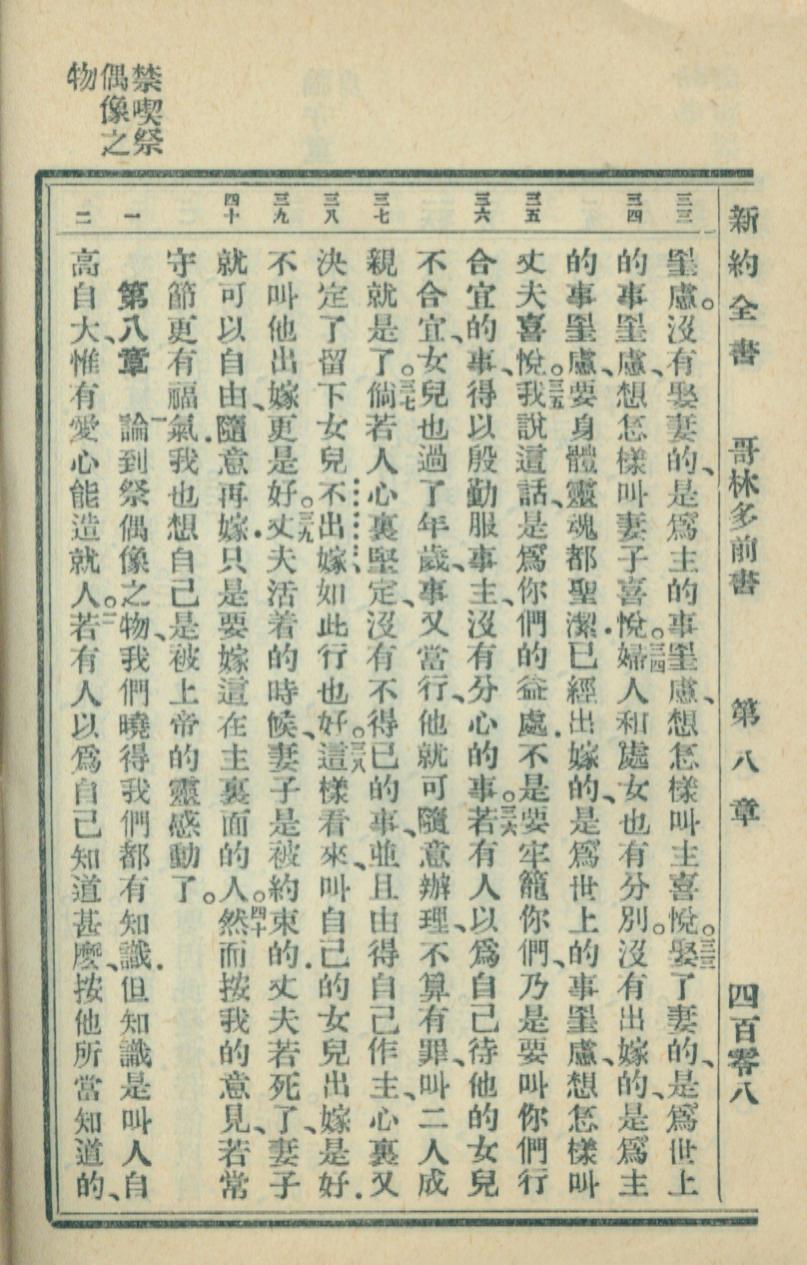 新約全書 哥林多前書 第八章 四百零八
三三 三四 三五 三六 三七 三八 三九 四十 一 二
罣慮。沒有娶妻的、是爲主的事罣慮、想怎樣叫主喜悅。三三娶了妻的、是爲世上
的事罣慮、想怎樣叫妻子喜悅。三四婦人和處女也有分別。沒有出嫁的、是爲主
的事罣慮、要身體靈魂都聖潔．已經出嫁的、是爲世上的事罣慮、想怎樣叫
丈夫喜悅。三五我說這話、是爲你們的益處．不是要牢籠你們、乃是要叫你們行
合宜的事、得以殷勤服事主、沒有分心的事。三六若有人以爲自己待他的女兒
不合宜、女兒也過了年歲、事又當行、他就可隨意辦理、不算有罪、叫二人成
親就是了。三七倘若人心裏堅定、沒有不得已的事、並且由得自己作主、心裏又
決定了留下女兒不出嫁、如此行也好。三八這樣看來、叫自己的女兒出嫁是好．
不叫他出嫁更是好。三九丈夫活着的時候、妻子是被約束的．丈夫若死了、妻子
就可以自由、隨意再嫁．只是要嫁這在主裏面的人。四十然而按我的意見、若常
守節更有福氣．我也想自己是被上帝的靈感動了。
第八章 一論到祭偶像之物、我們曉得我們都有知識．但知識是叫人自
高自大、惟有愛心能造就人。二若有人以爲自己知道甚麼、按他所當知道的、
禁喫祭
偶像之
物